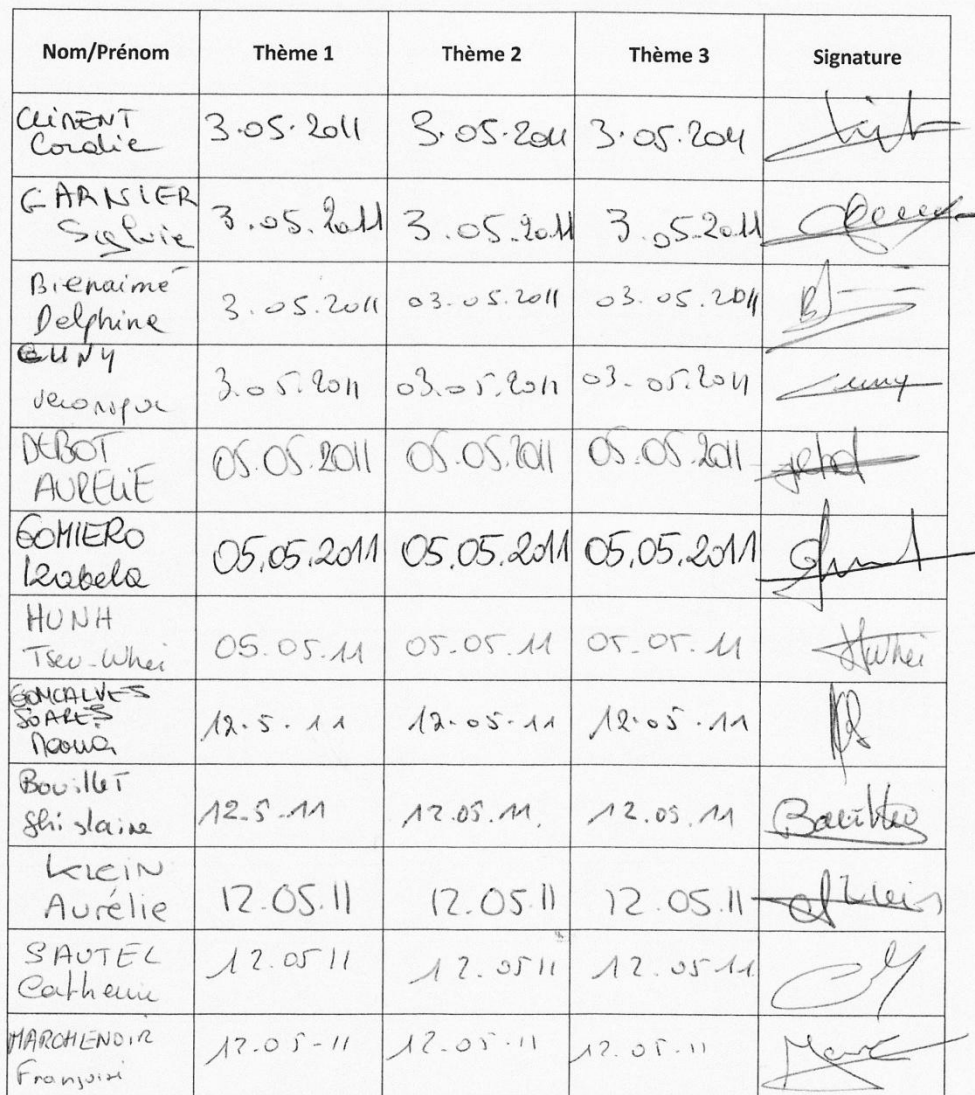 Nom/Prénom Thème 1 Thème 2 Thème 3 Signature
CLIMENT
Coralie 3.05.2011 3.05.2011 3.05.2011
GARNIER
Sylvie 3.05.2011 3.05.2011 3.05.2011
Bienaimé
Delphine 3.05.2011 03.05.2011 03.05.2011
CUNY
Veronique 3.05.2011 03.05.2011 03.05.2011 Cuny
DEBOT
AURELIE 05.05.2011 05.05.2011 05.05.2011
GOMIERO
Izabela 05.05.2011 05.05.2011 05.05.2011
HUNH
Tseu-Whei 05.05.11 05.05.11 05.05.11
GONCALVES
SOARES 12.5.11 12.05.11 12.05.11
BouilleT
Ghislaine 12.5.11 12.05.11. 12.05.11
KLEIN
Aurélie 12.05.11 12.05.11 12.05.11 Klein
SAUTEL
Catherine 12.05 11 12.05 11 12.05 11
MARCHENOIR
Françoise 12.05-11 12.05.11 12.05.11